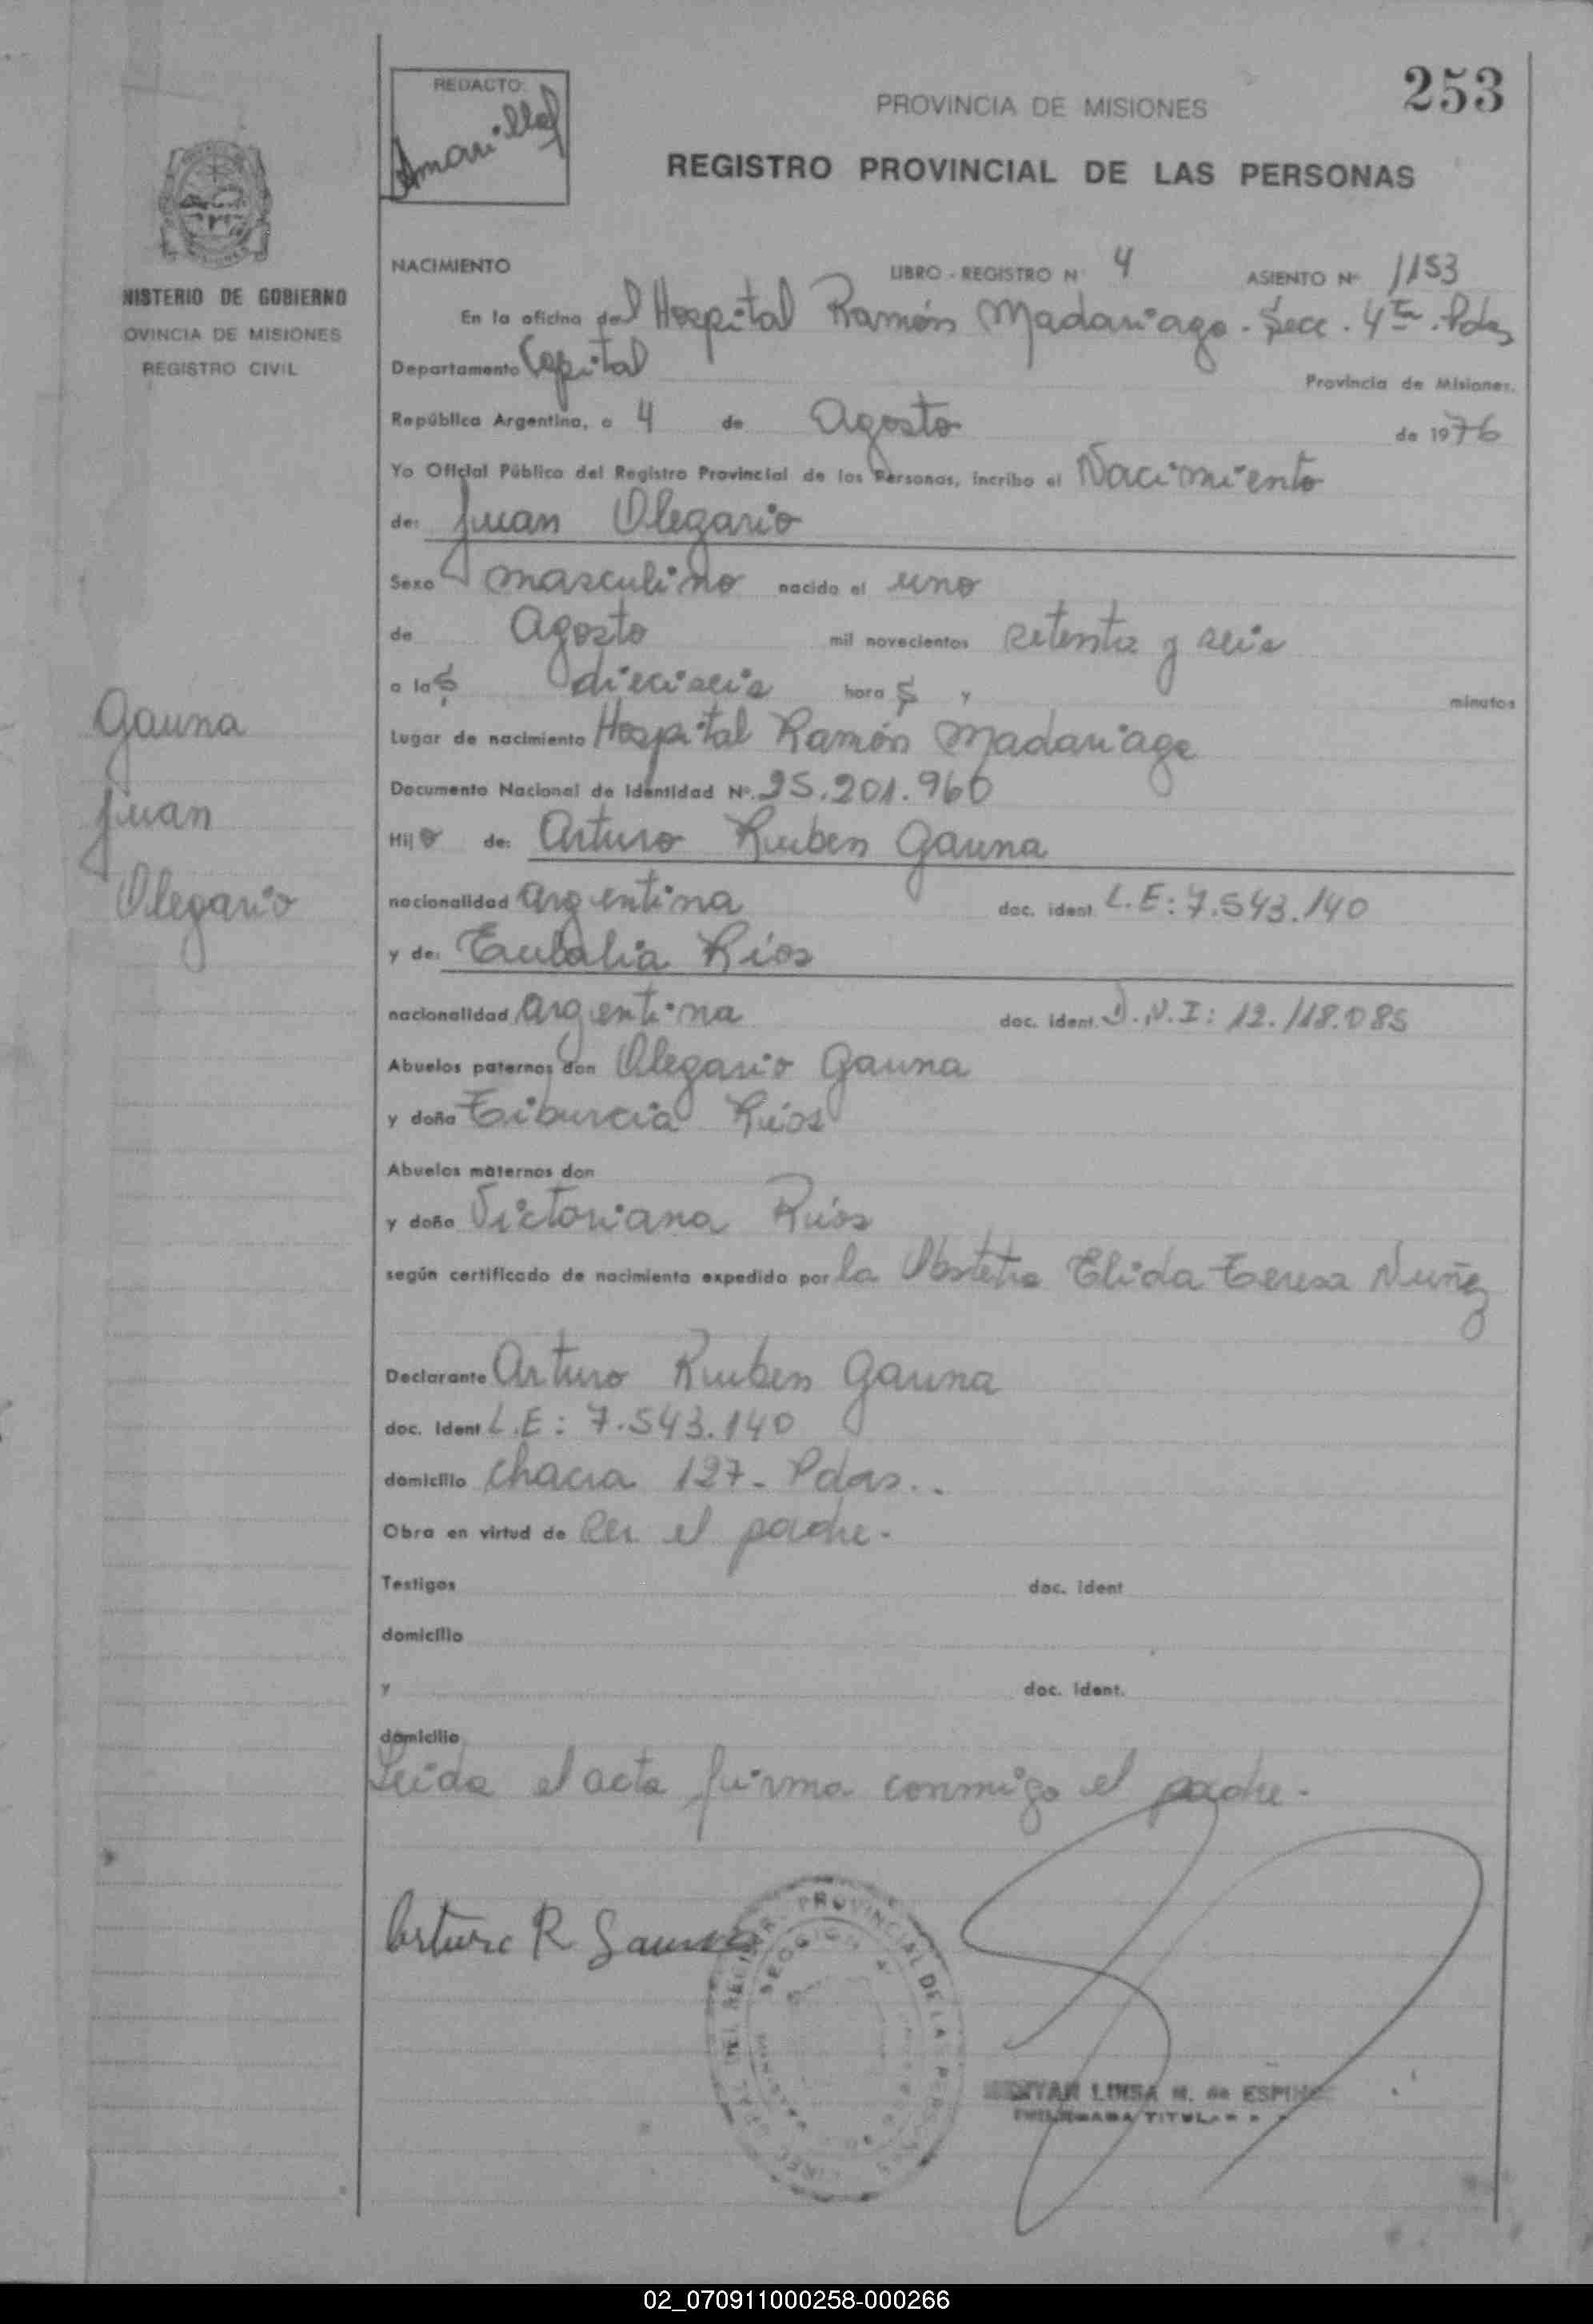 253
REDACTO:
Amarilla
PROVINCIA DE MISIONES
REGISTRO PROVINCIAL DE LAS PERSONAS
NISTERIO DE GOBIERNO
OVINCIA DE MISIONES
REGISTRO CIVIL
NACIMIENTO LIBRO - REGISTRO N° 4 ASIENTO N° 1153
En la oficina del Hospital Ramón Madariaga - Secc. 4ta. Pdas
Departamento Capital Provincia de Misiones.
República Argentina, a 4 de Agosto de 1976
Yo Oficial Público del Registro Provincial de las Personas, incribo el Nacimiento
de: Juan Olegario
Sexo masculino nacido el uno
de Agosto mil novecientos setenta y seis
a las dieciseis horas y minutos
Lugar de nacimiento Hospital Ramón Madariaga
Documento Nacional de Identidad N°. 25.201.960
Hijo de: Arturo Ruben Gauna
nacionalidad argentina doc. ident. L.E: 7.543.140
y de: Eulalia Ríos
nacionalidad argentina doc. ident. D.N.I: 12.118.085
Abuelos paternos don Olegario Gauna
y doña Tiburcia Ríos
Abuelos maternos don
y doña Victoriana Ríos
según certificado de nacimiento expedido por la Obstetra Elida Teresa Nuñez
Declarante Arturo Ruben Gauna
doc. Ident L.E: 7.543.140
domicilio chacra 127 - Pdas..
Obra en virtud de ser el padre.
Testigos doc. ident
domicilio
y doc. ident.
domicilio
Leida el acta firma conmigo el padre.
Gauna
Juan
Olegario
Arturo R Gauna
PROVINCIAL DE LAS PERSONAS
SECCION 4
LUISA M. de ESPIN
TITULAR
02_070911000258-000266